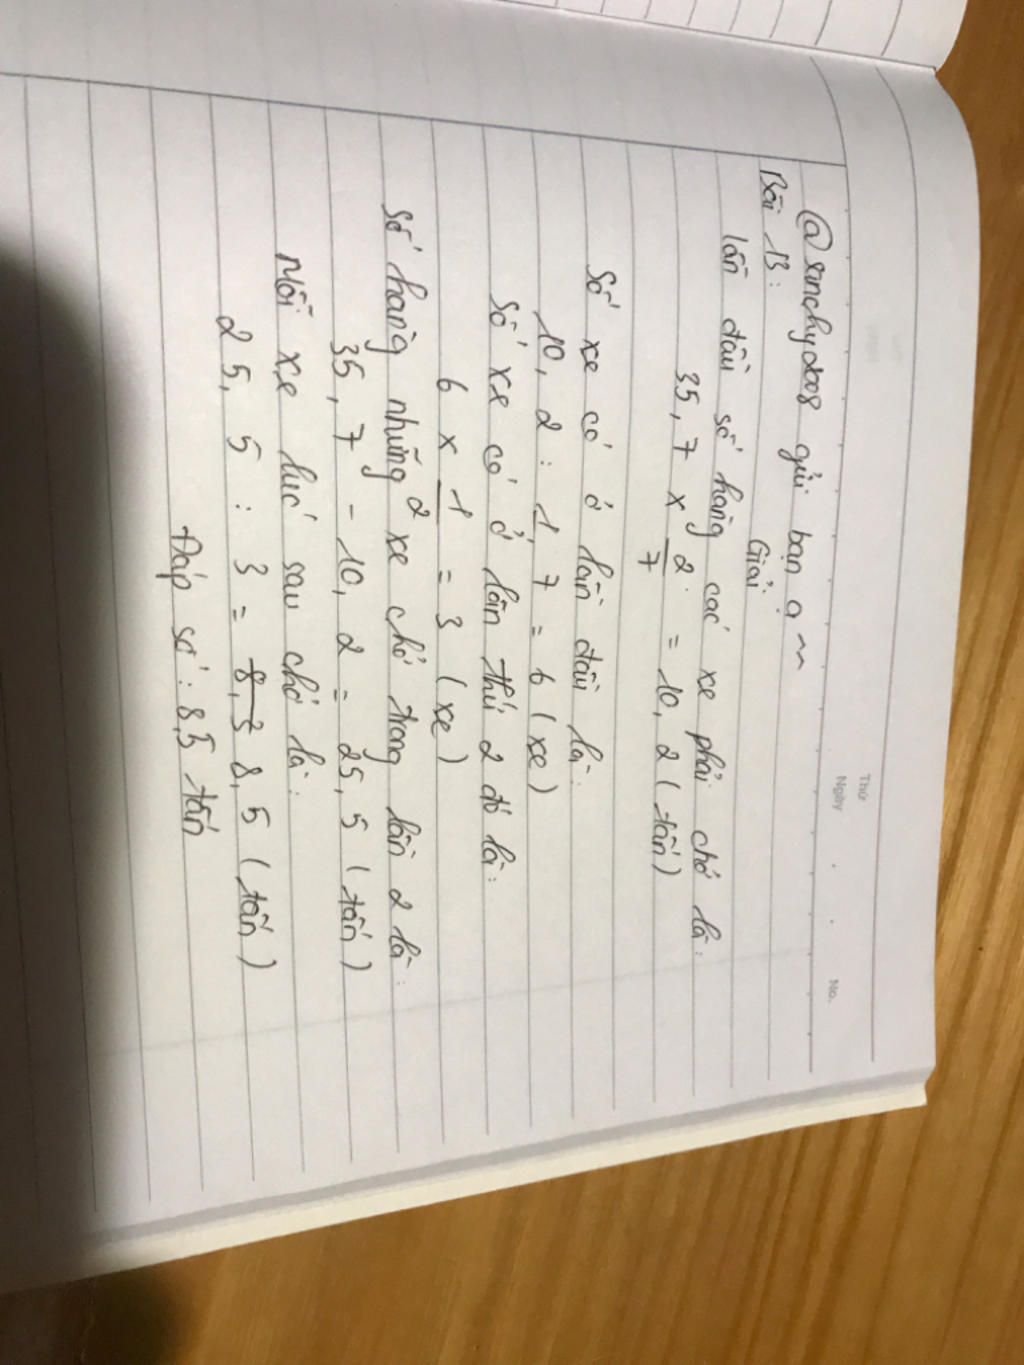 Thứ
Ngày . . No.
@xinchy2008 gửi bạn ạ ~
Bài 13: Giải
lần đầu số hàng các xe phải chở là:
35,7 x 2/7 = 10,2 (tấn)
Số xe có ở lần đầu là:
10,2 : 1,7 = 6 (xe)
Số xe có ở lần thứ 2 đó là:
6 x 1/2 = 3 (xe)
Số hàng những xe chở trong lần 2 là:
35,7 - 10,2 = 25,5 (tấn)
Mỗi xe lúc sau chở là:
25,5 : 3 = 8,3 8,5 (tấn)
Đáp số: 8,5 tấn